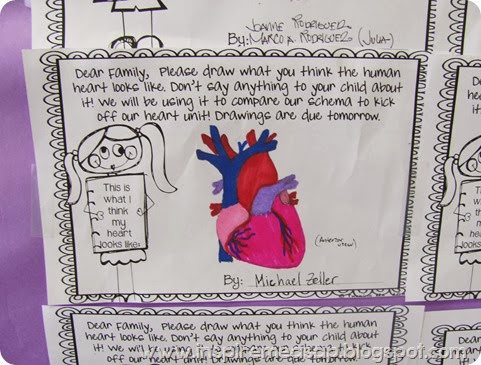 JOANNE RODRIGUEZ
By: MARCO A. RODRIGUEZ (JULIA)
Dear Family, Please draw what you think the human
heart looks like. Don't say anything to your child about
it! We will be using it to compare our schema to kick
off our heart unit! Drawings are due tomorrow.
This is
what I
think
my
heart
looks like:
(Anterior
view)
By: Michael Zeller
Dear Family, Please draw what you think the human
heart looks like. Don't say anything to your child about
it! We will be using it to compare our schema to kick
off our heart unit! Drawings are due tomorrow.
www.inspiremeasap.blogspot.com